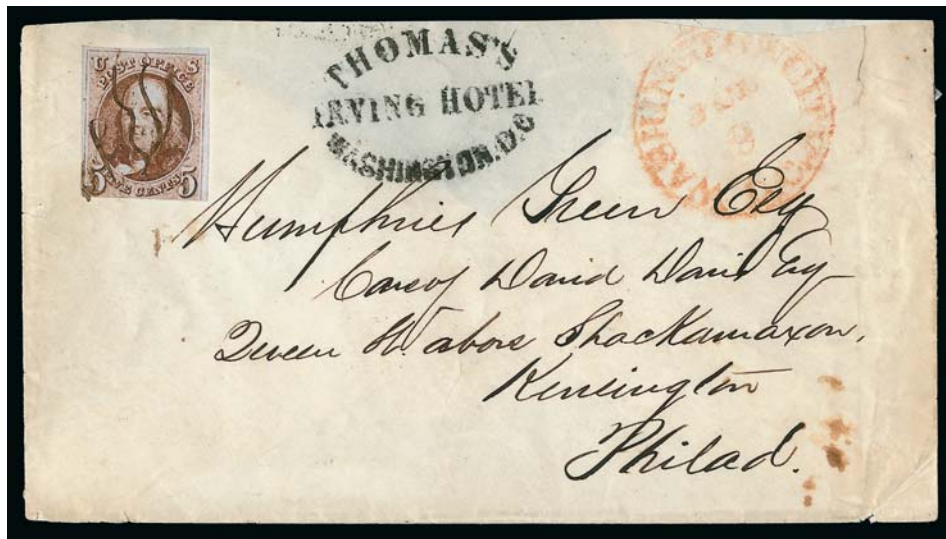 U S
POST OFFICE
5 FIVE CENTS 5
THOMAS'S
IRVING HOTEL
WASHINGTON, D.C
WASHINGTON CITY
Humphries Green Esq
Care of David Davis Esq
Queen St. above Shackamaxon,
Kensington
Philad.